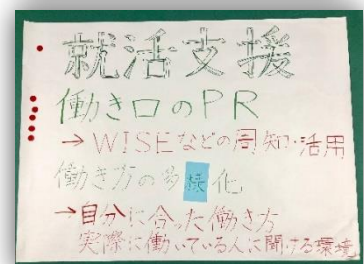 就活支援
働き口のPR
→WISEなどの周知・活用
働き方の多様化
→自分に合った働き方
実際に働いている人に聞ける環境